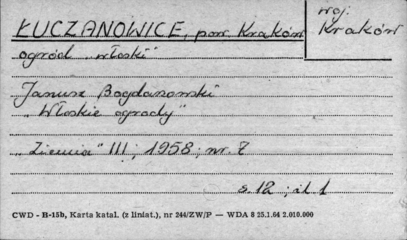 ŁUCZANOWICE, pow. Kraków
woj.
Kraków
ogród „włoski”
Janusz Bogdanowski
„Włoskie ogrody”
„Ziemia” III; 1958; nr. 7
s. 12; il. 1
CWD - B-15b, Karta katal. (z liniat.), nr 244/ZW/P — WDA 8 25.1.64 2.010.000